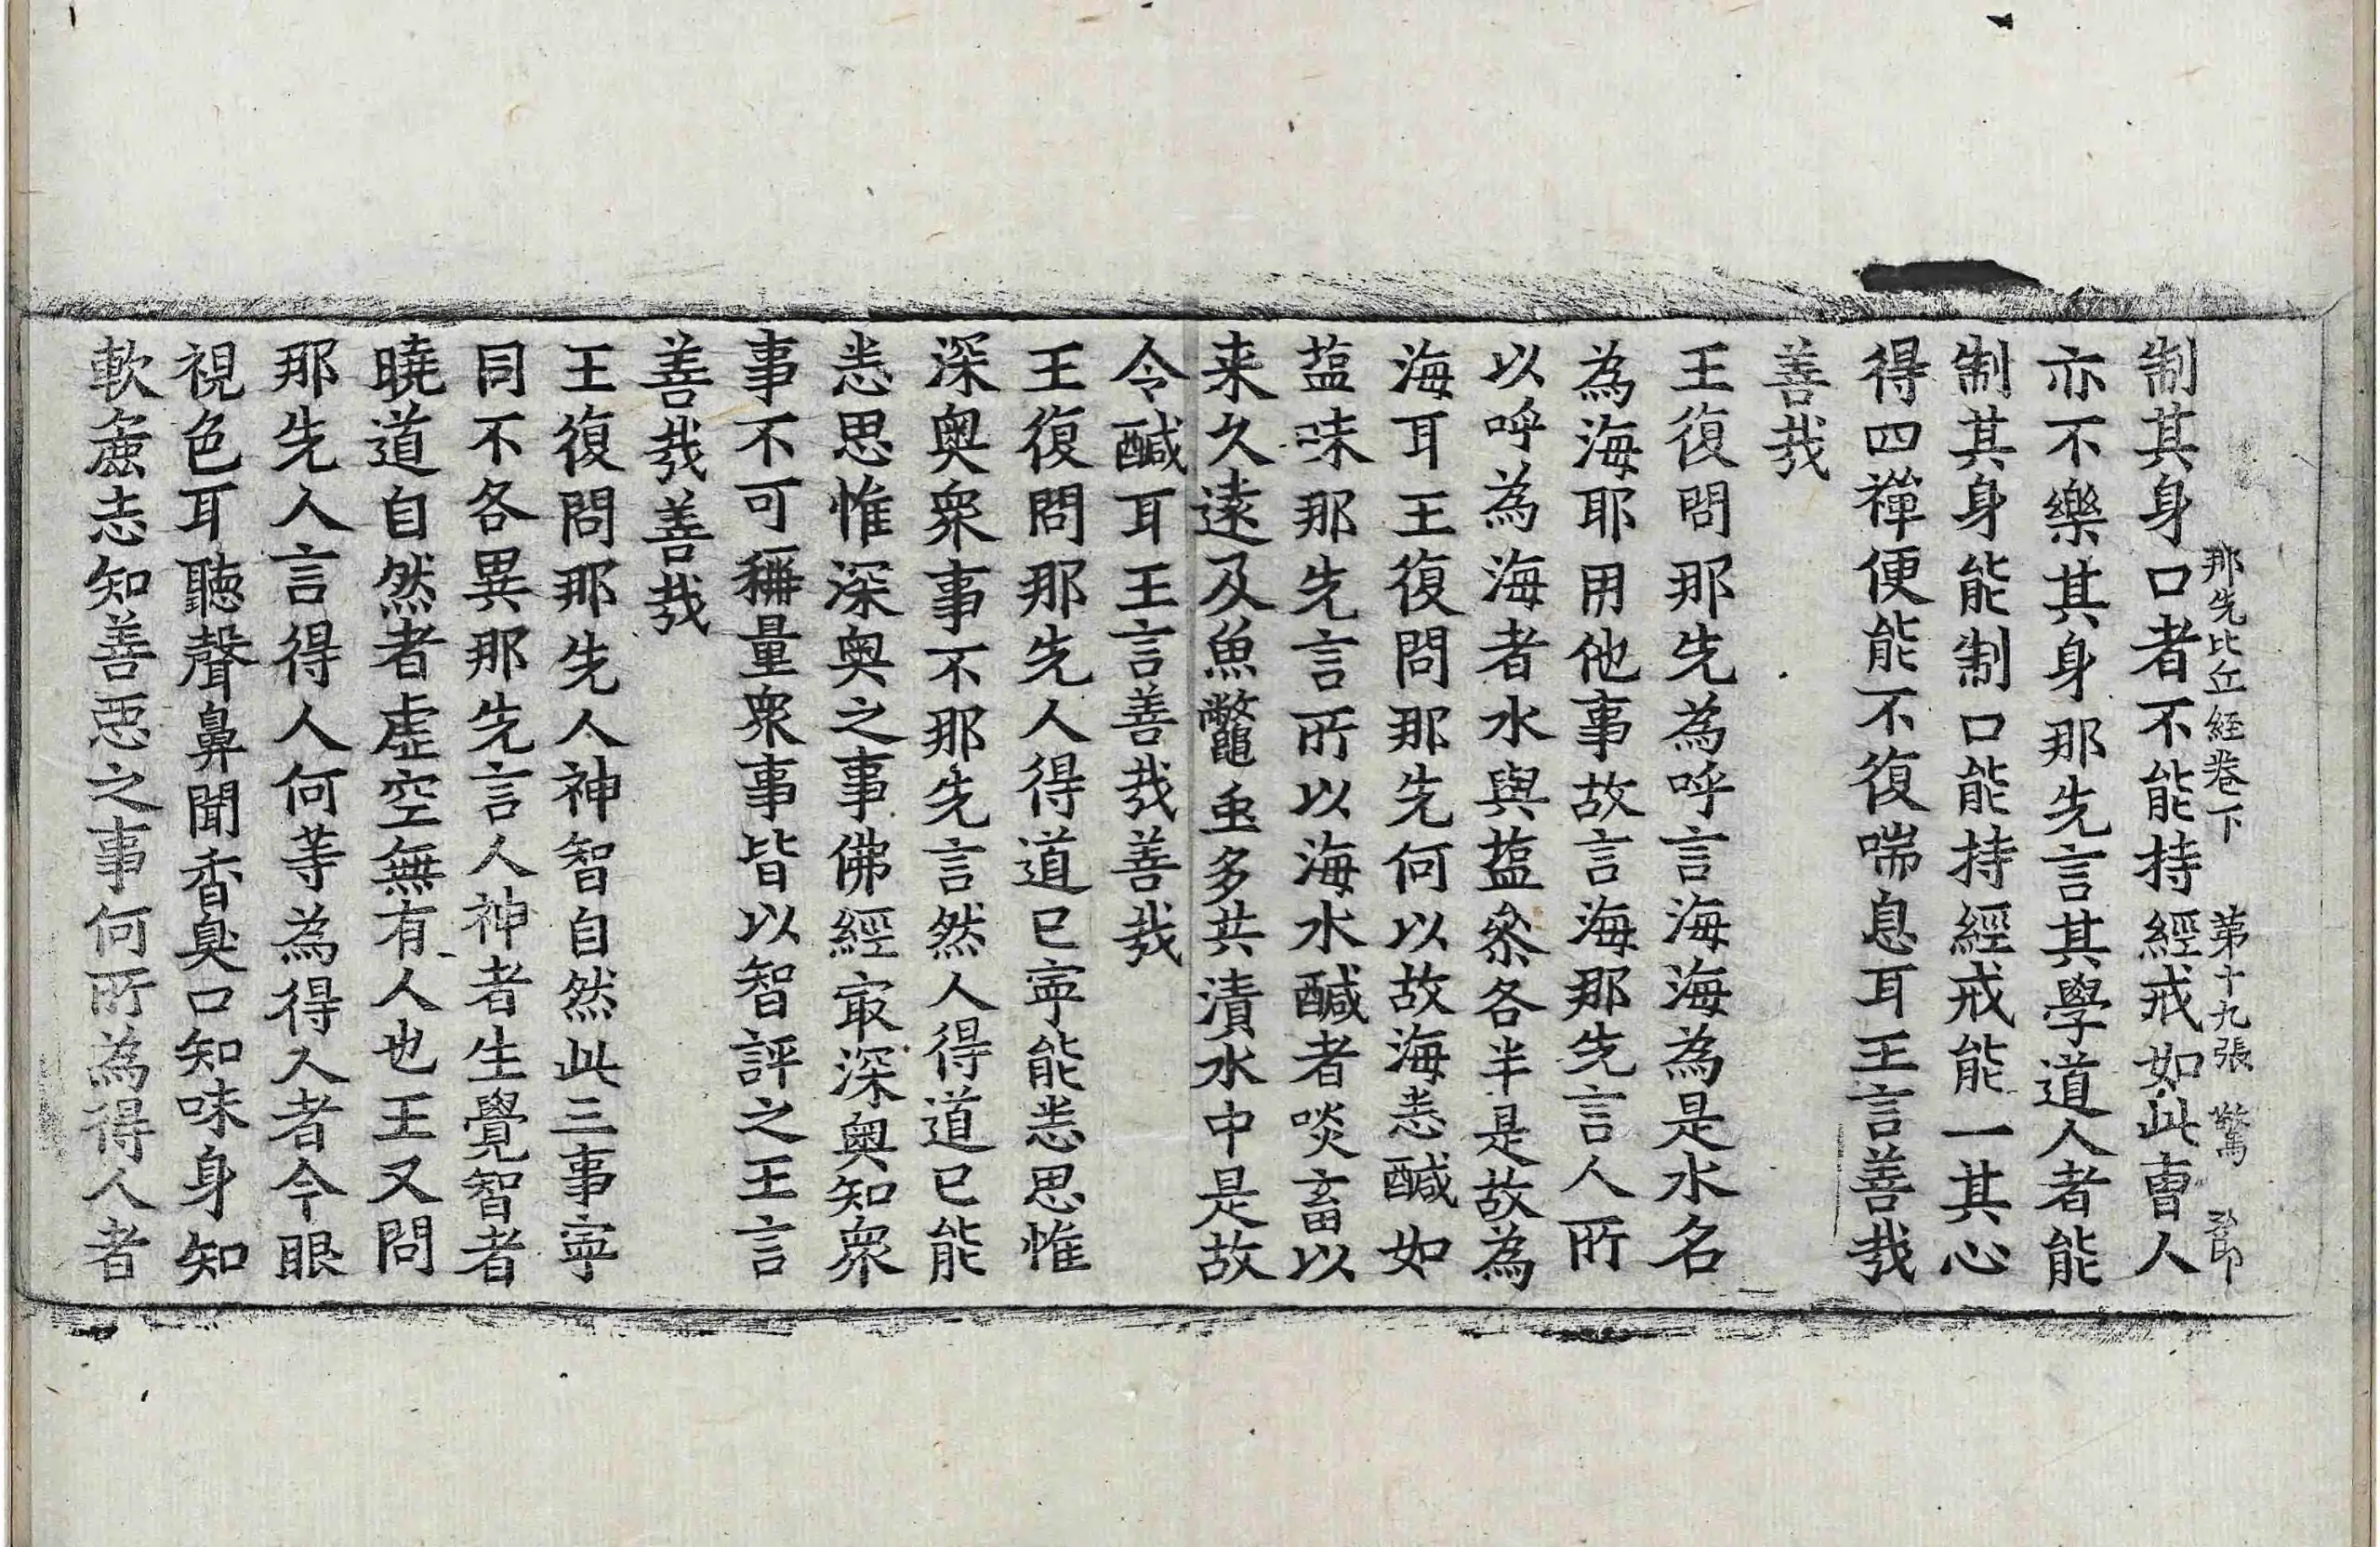 那先比丘經卷下 第十九張 驚
制其身口者不能持經戒如此曺人
亦不樂其身那先言其學道人者能
制其身能制口能持經戒能一其心
得四禪便能不復喘息耳王言善哉
善哉
王復問那先為呼言海海為是水名
為海耶用他事故言海那先言人所
以呼為海者水與塩叅各半是故為
海耳王復問那先何以故海悉醎如
塩味那先言所以海水醎者啖畜以
来久遠及魚鼈虫多共漬水中是故
令醎耳王言善哉善哉
王復問那先人得道已寧能悉思惟
深奥衆事不那先言然人得道已能
悉思惟深奥之事佛經冣深奥知衆
事不可稱量衆事皆以智評之王言
善哉善哉
王復問那先人神智自然此三事寧
同不各異那先言人神者生覺智者
曉道自然者虛空無有人也王又問
那先人言得人何等為得人者今眼
視色耳聽聲鼻聞香臭口知味身知
軟麁志知善惡之事何所為得人者